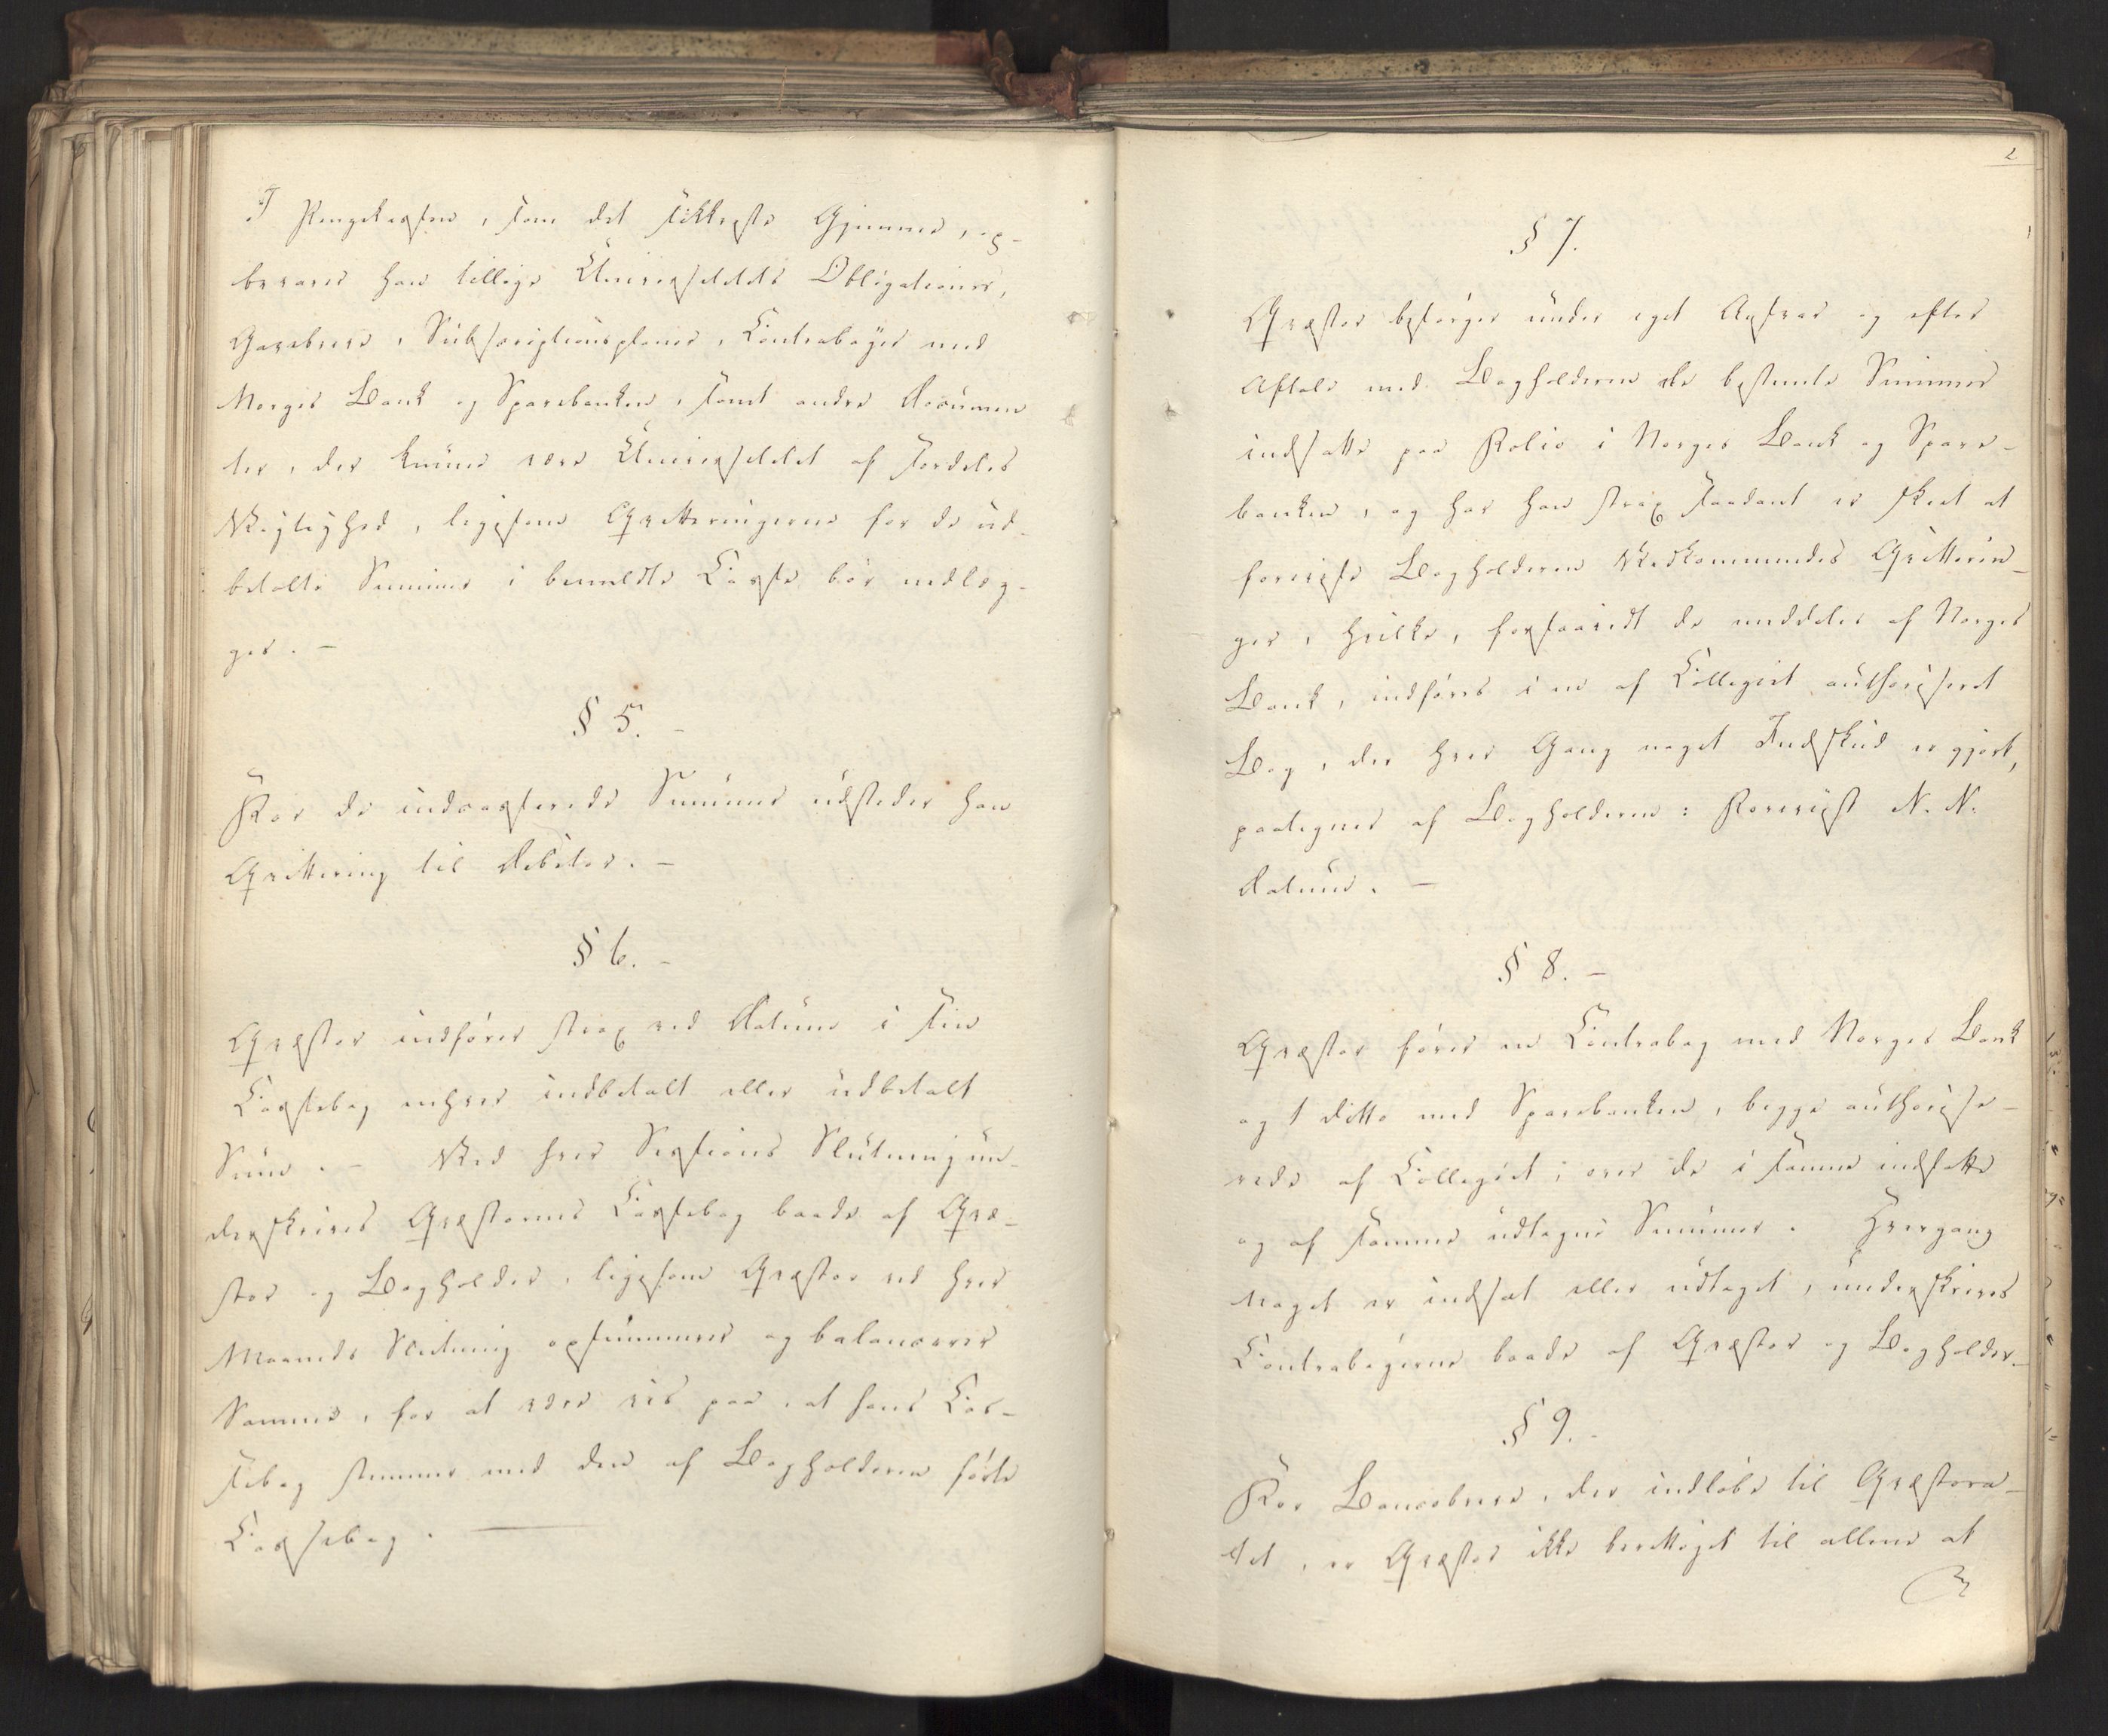 I Pengekasten, som det sikkreste Gjemme, op-
bevarer han tillige Universitetets Obligationer,
Gavebreve, Subscriptionsplaner, Contrabøger med
Norges Bank og Sparebanken, samt andre Documen
ter, der kunne være Universitetet af særdeles
Vigtighed, ligesom Qvitteringerne for de ud-
betalte Summer i bemeldte Casse bør nedlæg-
ges. –
§ 5. –
For de indcasserede Summer udsteder han
Qvittering til Debitor. –
§ 6. –
Qvæstor indfører strax ved Datum i sin
Cassebog enhver indbetalt eller udbetalt
Sum. – Ved hver Sessions Slutning un-
derskrives Qvæstorens Cassebog baade af Qvæ-
stor og Bogholder, ligesom Qvæstor ved hver
Maaneds Slutning opsummerer og balancerer
Samme, for at være vis paa, at hans Cas-
sebog stemmer med den af Bogholderen førte
Cassebog. –
2
§ 7.
Qvæstor besørger under eget Ansvar og efter
Aftale med Bogholderen de bestemte Summer
indsatte paa Folio i Norges Bank og Spare-
banken, og har han strax saadant er skeet at
forevise Bogholderen Vedkommendes Qvitterin-
ger, hvilke, forsaavidt de meddeles af Norges
Bank, indføres i en af Collegiet authoriseret
Bog, der hver Gang noget Indskud er gjort,
paategnes af Bogholderen: Foreviist N. N.
Datum. –
§ 8. –
Qvæstor fører en Contrabog med Norges Bank
og 1 ditto med Sparebanken, begge authorise-
rede af Collegiet, over de i samme indsatte
og af samme udtagne Summer. Hvergang
Noget er indsat eller udtaget, underskrives
Contrabøgerne baade af Qvæstor og Bogholder. –
§ 9. –
For Bancobreve, der indløbe til Qvæstora-
tet, er Qvæstor ikke berettiget til allene at